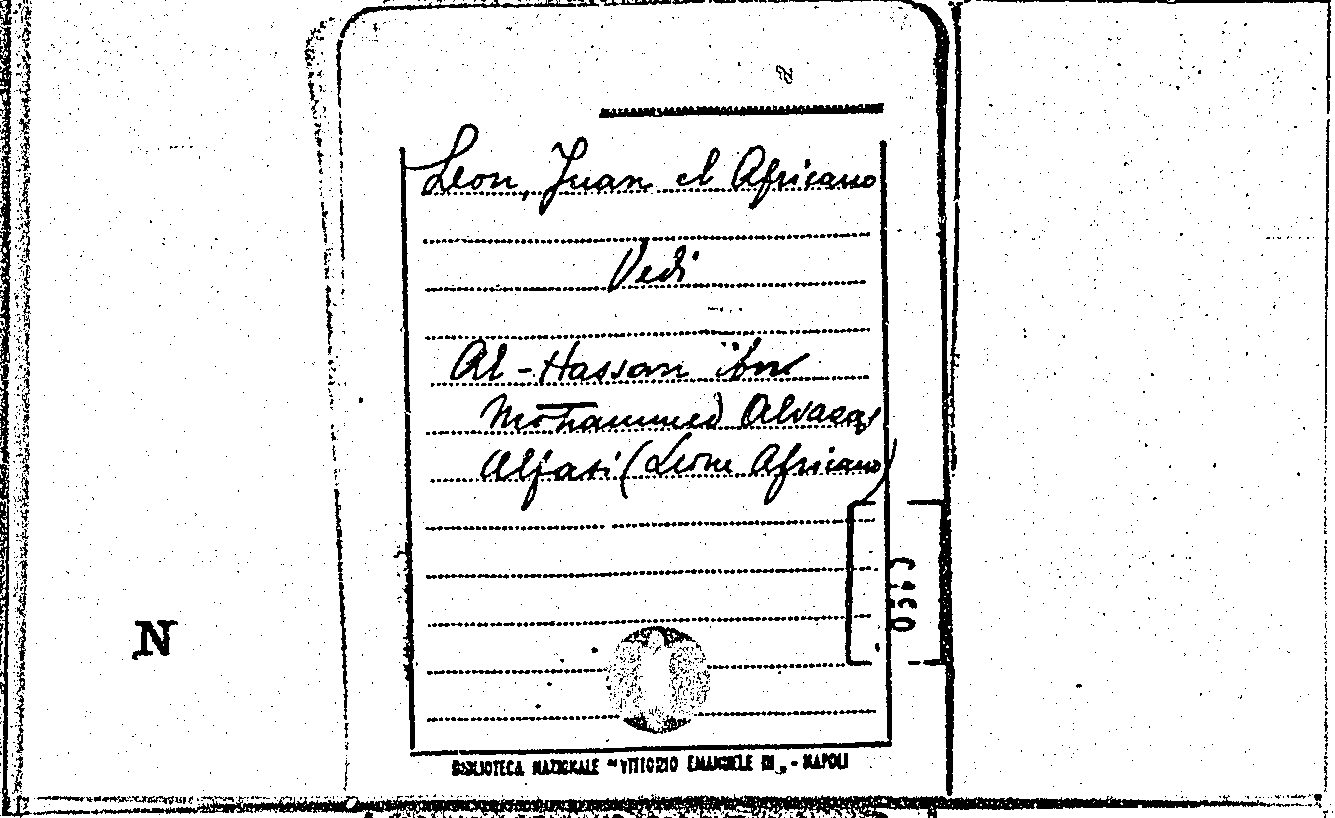 Leon, Juan el Africano
Vedi
Al-Hassan ibn
Mohammed Alvasas
Alfasi (Leone Africano)
0490
N
BIBLIOTECA NAZIONALE "VITTORIO EMANUELE III" - NAPOLI